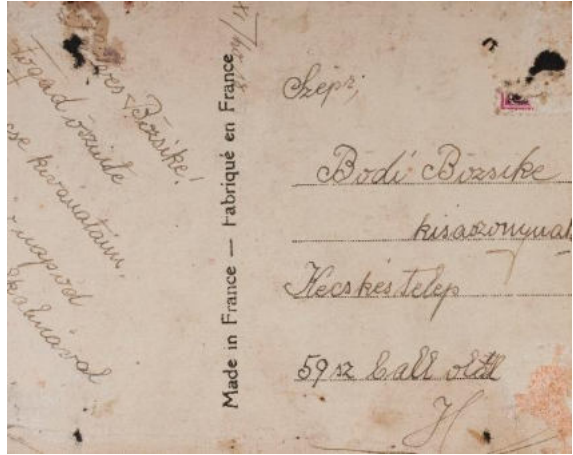 Bözsike!
fogad őszinte
kivánataim,
napod
alkalmával
Made in France — Fabriqué en France
Szép;
Bodi Bözsike
kisaszonynak
Kecskéstelep
59 sz ball oldal